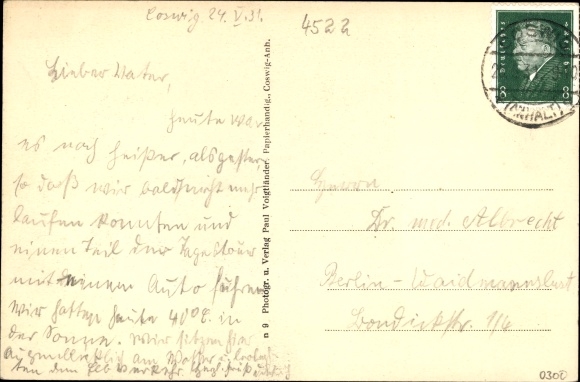 Coswig 24.V.31.
4522
Lieber Vater,
heute war
es noch heißer, als gestern,
so daß wir bald nicht mehr
laufen konnten und
einen Teil der Tagestour
mit einem Auto fuhren
Wir hatten heute 40° C. in
der Sonne. Wir sitzen hier
augenblicklich am Wasser u. beobach-
ten den Elbverkehr.
n 9 Photogr. u. Verlag Paul Voigtländer, Papierhandlg., Coswig-Anh.
DEUTSCHES REICH
8 8
COSWIG
(ANHALT)
Herrn
Dr. med. Albrecht
Berlin - Waidmannslust
Bondickstr. 1/6
0300